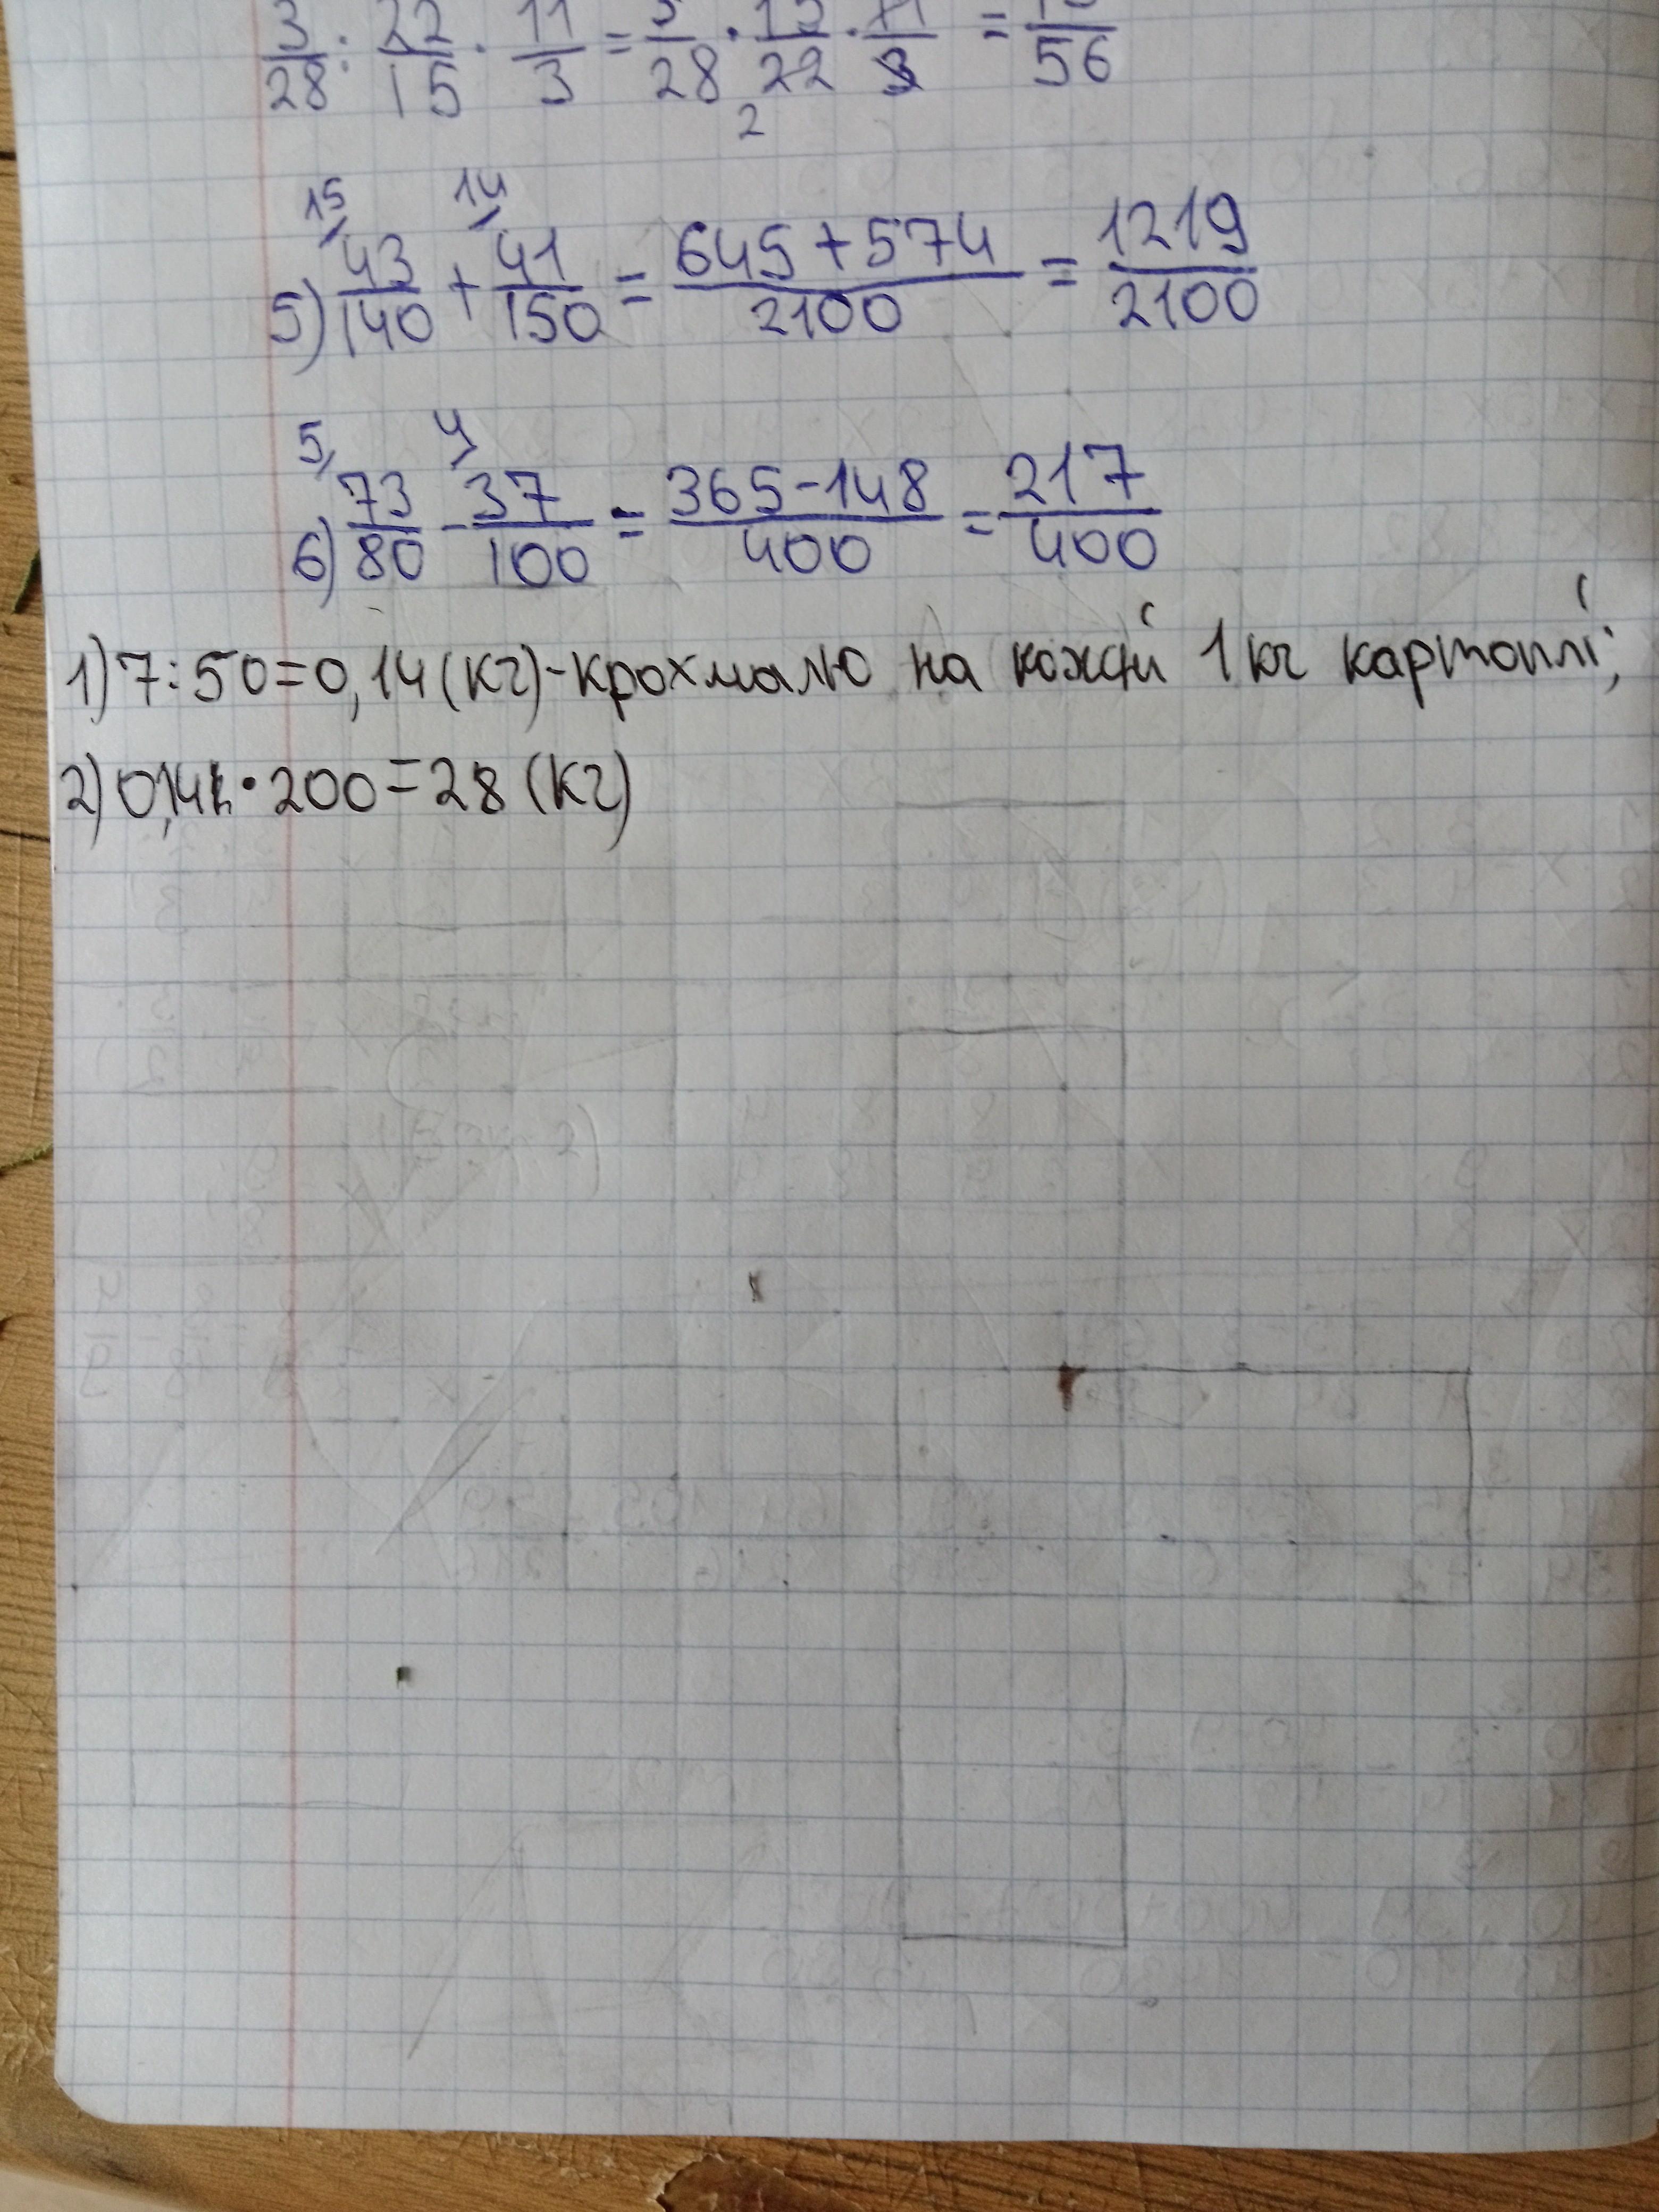 3/28 : 22/15 · 11/3 = 3/28 · 15/22 · 11/3 = 15/56
2
15 14
5) 43/140 + 41/150 = 645+574/2100 = 1219/2100
5 4
6) 73/80 - 37/100 = 365-148/400 = 217/400
1) 7:50=0,14(кг)-крохмалю на кожні 1кг картоплі;
2) 0,14·200=28 (кг)